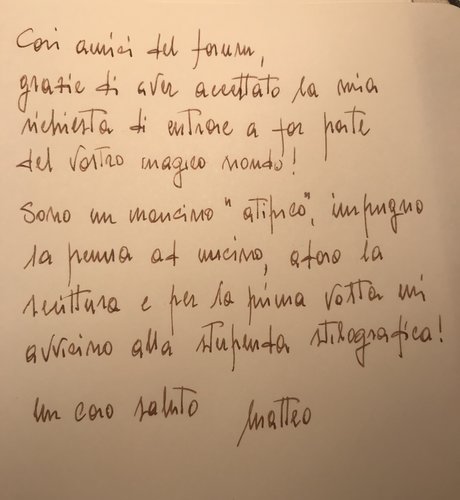 Cari amici del forum,
grazie di aver accettato la mia
richiesta di entrare a far parte
del vostro magico mondo!
Sono un mancino "atipico", impugno
la penna ad uncino, adoro la
scrittura e per la prima volta mi
avvicino alla stupenda stilografica!
Un caro saluto Matteo